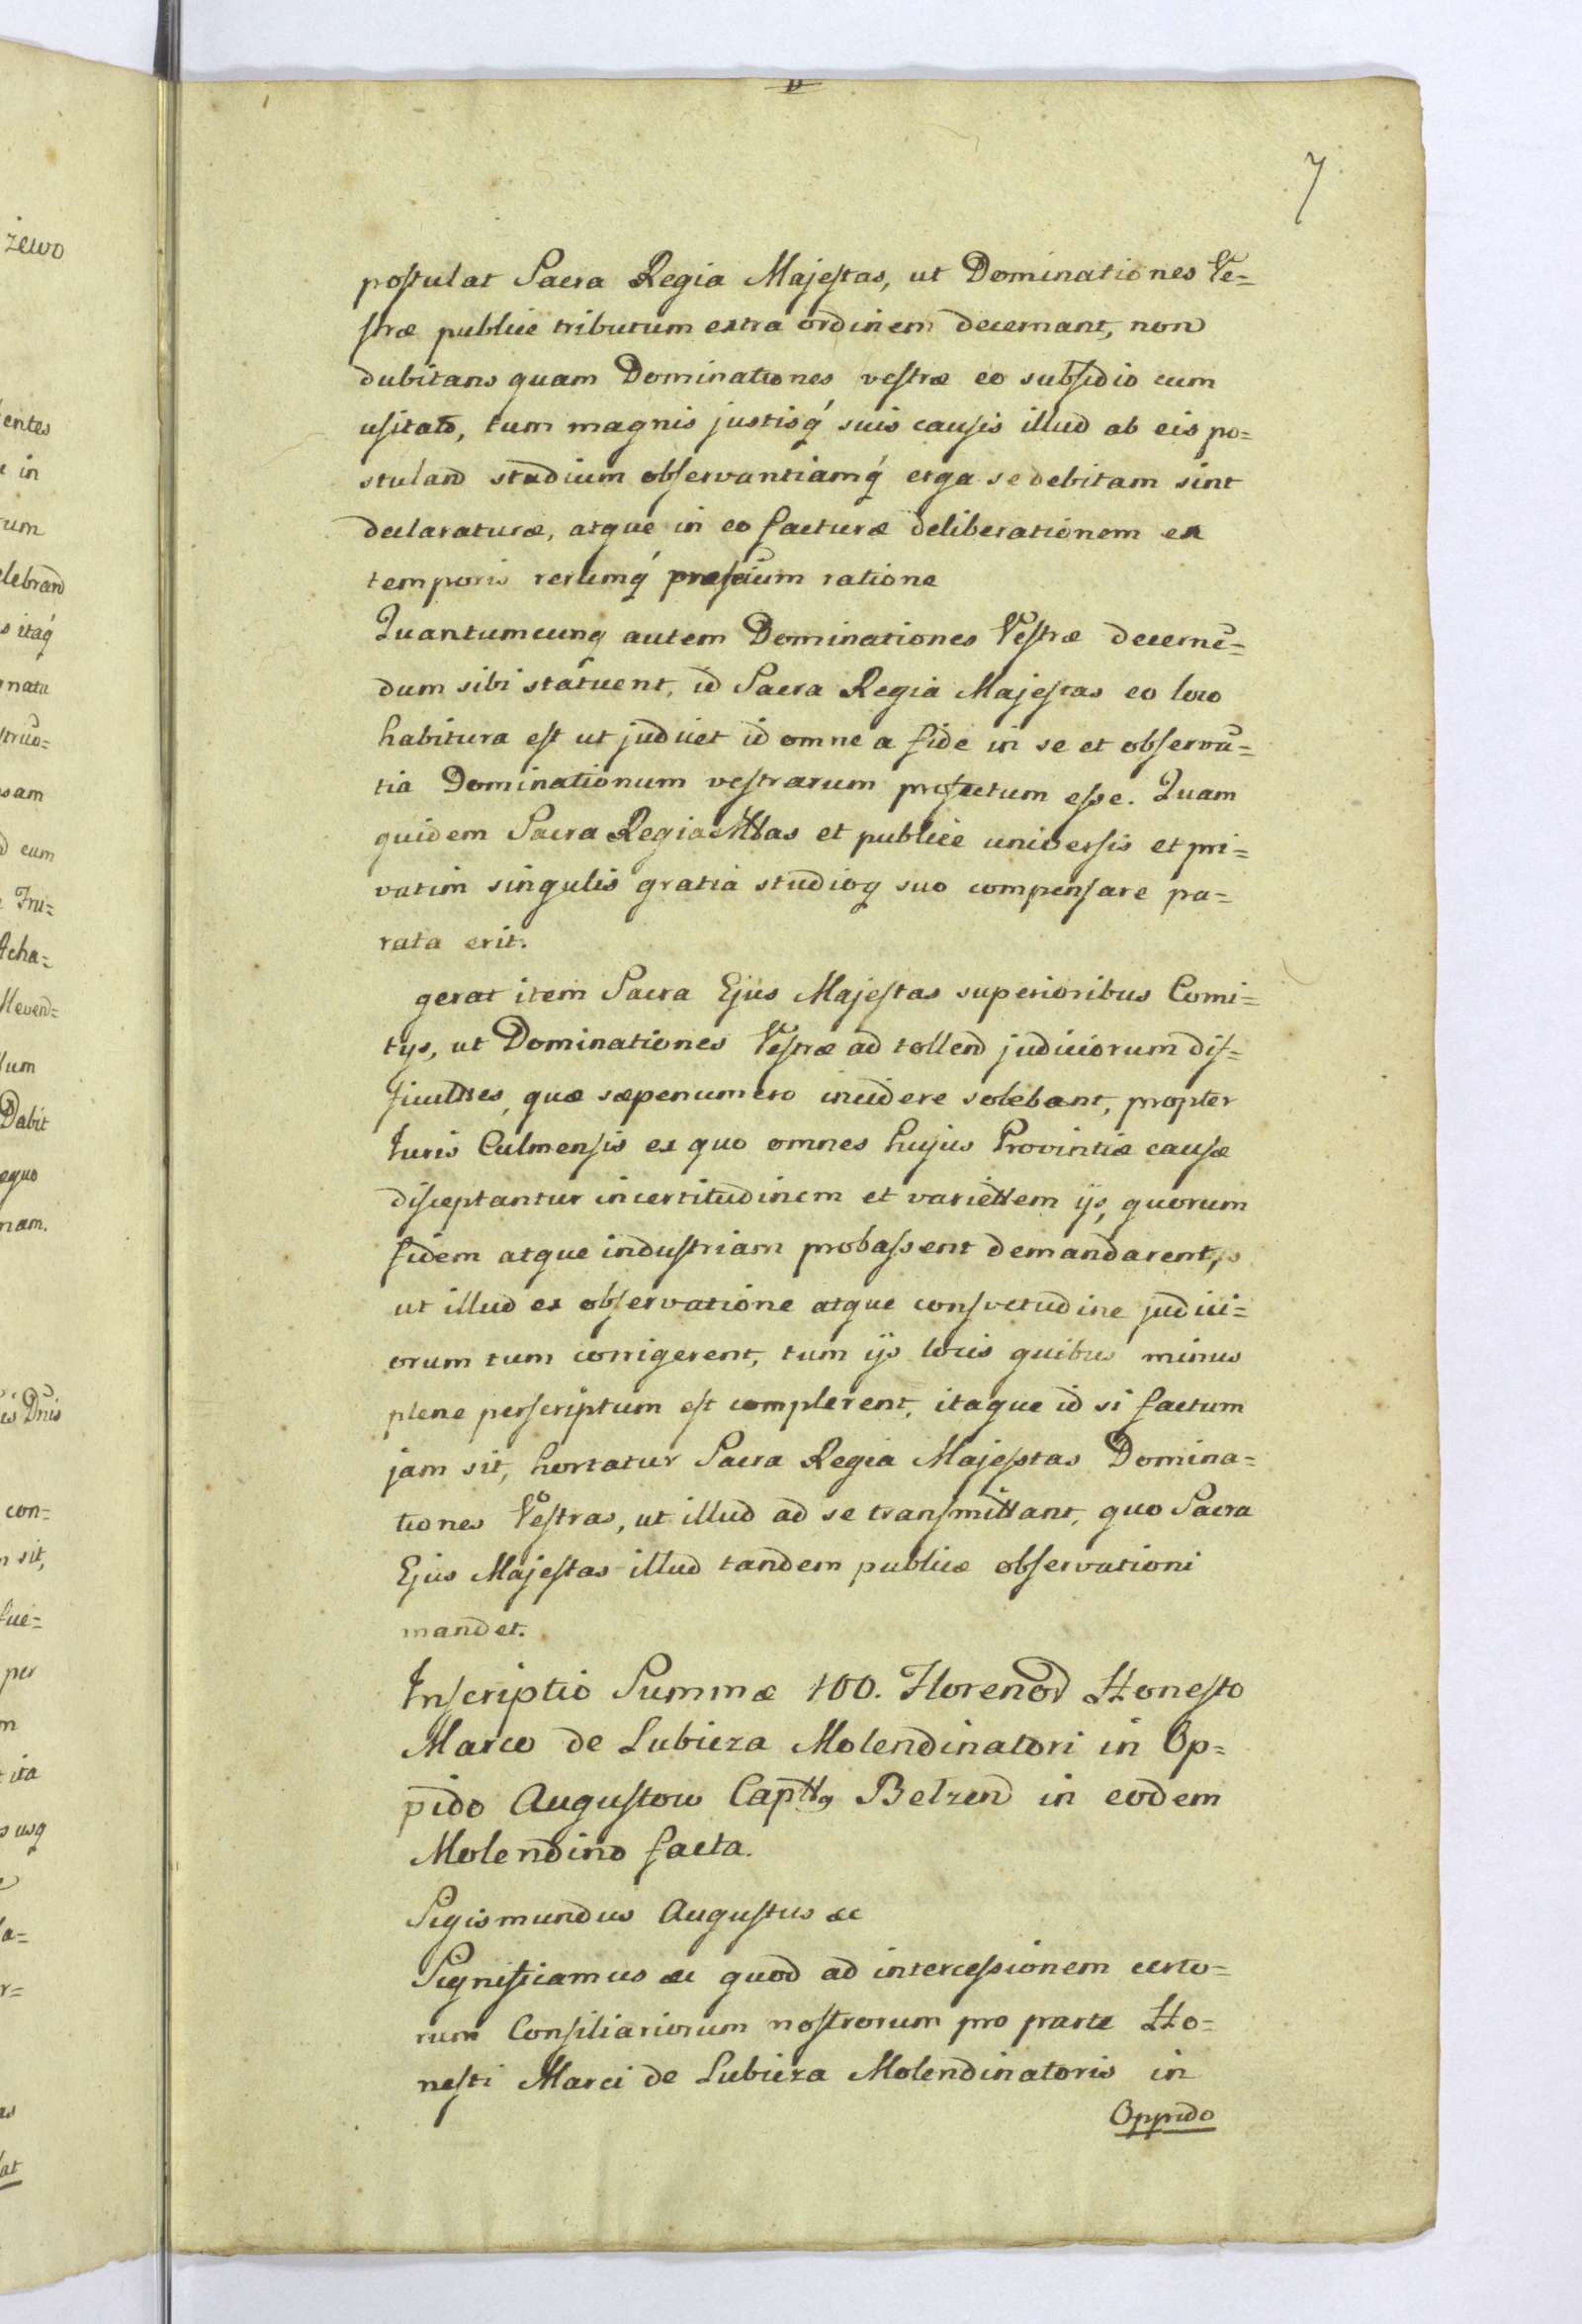 żewo
entes
in
um
elebrand
s itaq́
natu
strũo=
sam
cum
Fri=
Acha=
Meven=
lum
Dabit
equo
nam.
is Dnis
con=
sit,
fue=
per
m
ita
usq
la=
r=
as
at
7
postulat Sacra Regia Majestas, ut Dominationes Ve=
stræ publice tributum extra ordinem decernant, non
dubitans quam Dominationes vestræ eo subsidio cum
usitato, tum magnis justisq́ suis causis illud ab eis po=
stuland studium observantiamq́ erga se debitam sint
declaraturæ, atque in eo facturæ deliberationem ex
temporis rerumq́ præsẽium ratione
Quantumcunq autem Dominationes Vestræ decernẽ=
dum sibi statuent, id Sacra Regia Majestas eo loco
habitura est ut judicet id omne a fide in se et observã=
tia Dominationum vestrarum profectum esse. Quam
quidem Sacra Regia Mttas et publice universis et pri=
vatim singulis gratia studioq suo compensare pa=
rata erit.
gerat item Sacra Ejus Majestas superioribus Comi=
tys, ut Dominationes Vestræ ad tollend judiciorum dif=
ficulttes, quæ sæpenumero incidere solebant, propter
Iuris Culmensis ex quo omnes hujus Provintiæ causæ
disceptantur incertitudinem et varietttem ijs, quorum
fidem atque industriam probassent demandarent,
ut illud ex observatione atque consvetudine judici=
orum tum corrigerent, tum ijs locis quibus minus
plene perscriptum est complerent, itaque id si factum
jam sit, hortatur Sacra Regia Majestas Domina=
tiones Vestras, ut illud ad se transmittant, quo Sacra
Ejus Majestas illud tandem publicæ observationi
mandet.
Inscriptio Summæ 100. Florenor Honesto
Marco de Lubicza Molendinatori in Op=
pido Augustow Capttq Belzen in eodem
Molendino facta.
Sigismundus Augustus &c
Significamus &c quod ad intercessionem certo=
rum Consiliariorum nostrorum pro parte Ho=
nesti Marci de Lubicza Molendinatoris in
Oppido